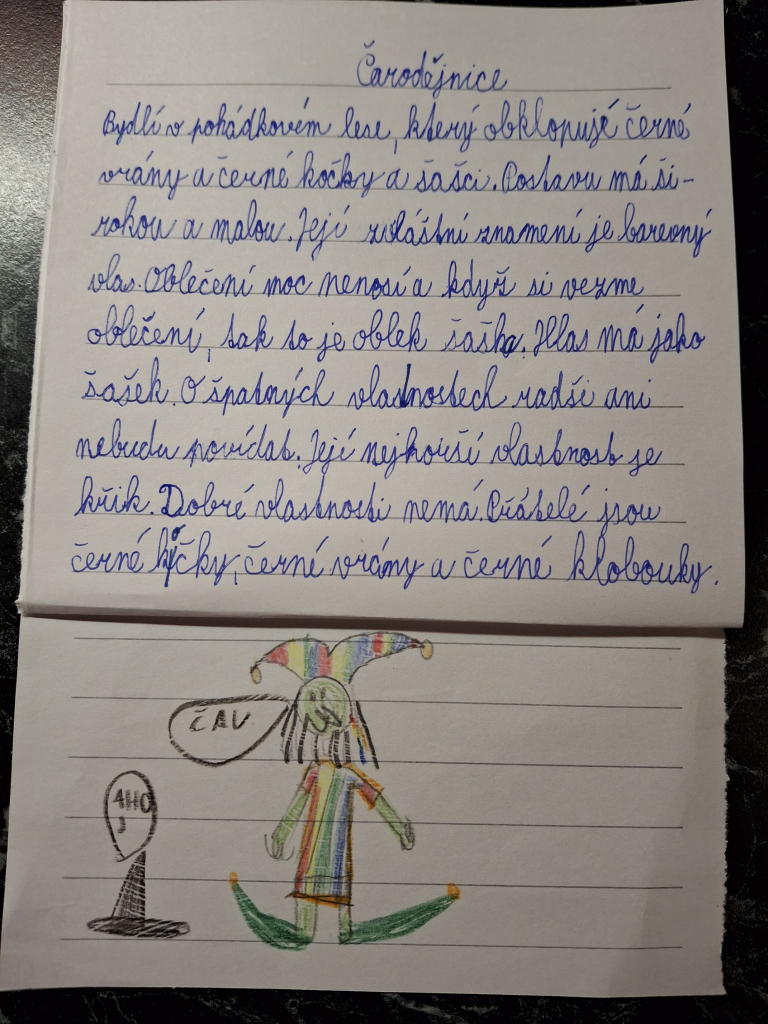 Čarodějnice
Bydlí v pohádkovém lese, který obklopujé černé
vrány a černé kočky a šašci. Postavu má ši-
rokou a malou. Její zvláštní znamení je barevný
vlas. Oblečení moc nenosí a když si vezme
oblečení, tak to je oblek šaška. Hlas má jako
šašek. O špatných vlastnostech radši ani
nebudu povídat. Její nejhorší vlastnost je
křik. Dobré vlastnosti nemá. Přátelé jsou
černé kočky, černé vrány a černé klobouky.
ČAU
AHO
J